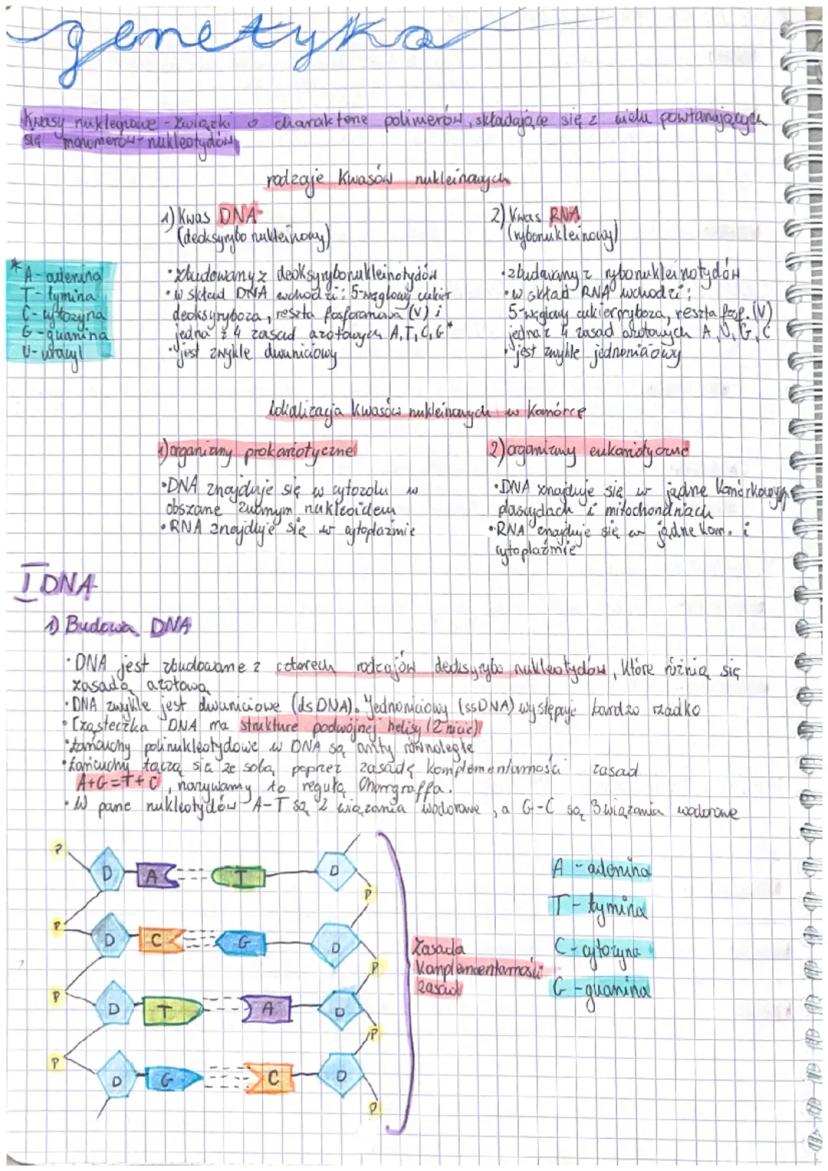 genetyka
Kwasy nukleinowe - związki o charakterze polimerów, składające się z wielu powtarzających
się monomerów - nukleotydów
rodzaje kwasów nukleinowych
1) Kwas DNA
(deoksyrybo nukleinowy)
• zbudowany z deoksyrybonukleinotydów
• w skład DNA wchodzi: 5-węglowy cukier
deoksyryboza, reszta fosforanowa (V) i
jedna z 4 zasad azotowych A, T, C, G*
• jest zwykle dwuniciowy
2) Kwas RNA
(rybonukleinowy)
• zbudowany z rybonukleinotydów
• w skład RNA wchodzi:
5-węglowy cukier ryboza, reszta fosf. (V)
jedna z 4 zasad azotowych A, U, G, C
• jest zwykle jednoniciowy
*
A - adenina
T - tymina
C - cytozyna
G - guanina
U - uracyl
lokalizacja kwasów nukleinowych w komórce
1) organizmy prokariotyczne
• DNA znajduje się w cytozolu w
obszarze zwanym nukleoidem
• RNA znajduje się w cytoplaźmie
2) organizmy eukariotyczne
• DNA znajduje się w jądrze komórkowym
plastydach i mitochondriach
• RNA znajduje się w jądrze kom. i
cytoplaźmie
I DNA
1) Budowa DNA
• DNA jest zbudowane z czterech rodzajów deoksyrybo nukleotydów, które różnią się
zasadą azotową
• DNA zwykle jest dwuniciowe (dsDNA). Jednoniciowy (ssDNA) występuje bardzo rzadko
• Cząsteczka DNA ma strukturę podwójnej helisy (2 nici)
• Łańcuchy polinukleotydowe w DNA są anty równoległe
• Łańcuchy łączą się ze sobą poprzez zasadę komplementarności zasad
A+G=T+C, nazywamy to regułą Chargraffa.
• W parze nukleotydów A-T są 2 wiązania wodorowe, a G-C są 3 wiązania wodorowe
P D A T D P
P D C G D P
P D T A D P
P D G C D P
Zasada
komplementarności
zasad
A - adenina
T - tymina
C - cytozyna
G - guanina